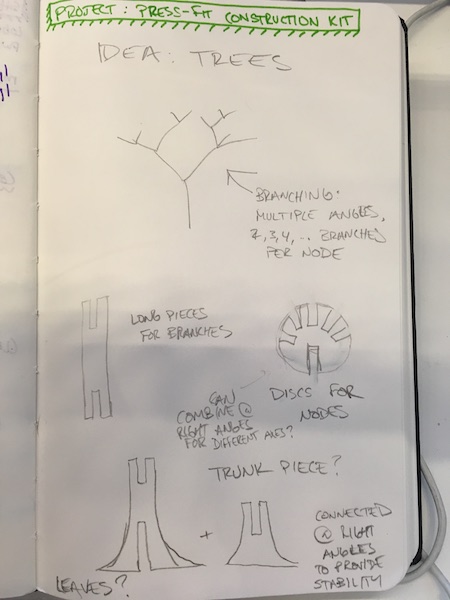 PROJECT: PRESS-FIT CONSTRUCTION KIT
IDEA: TREES
BRANCHING:
MULTIPLE ANGLES,
2,3,4,... BRANCHES
PER NODE
LONG PIECES
FOR BRANCHES
DISCS FOR
NODES
CAN
COMBINE @
RIGHT ANGLES
FOR DIFFERENT AXES?
TRUNK PIECE?
+
CONNECTED
@ RIGHT
ANGLES
TO PROVIDE
STABILITY
LEAVES?